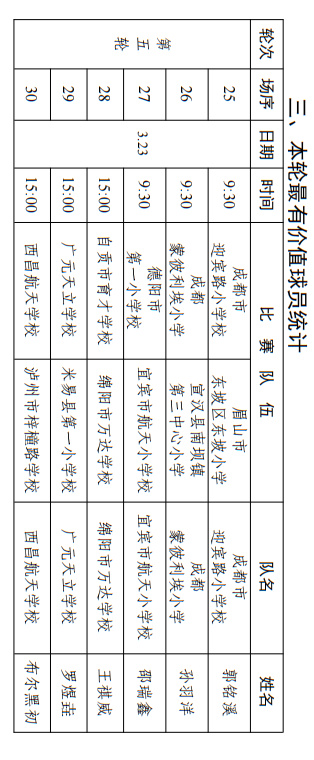 三、本轮最有价值球员统计
轮次 场序 日期 时间 比 赛 队 伍 队名 姓名
第五轮 3.23
25 9:30 成都市迎宾路小学校 眉山市东坡区东坡小学 成都市迎宾路小学校 郭铭溪
26 9:30 成都蒙彼利埃小学 宣汉县南坝镇第三中心小学 成都蒙彼利埃小学 孙羽洋
27 9:30 德阳市第一小学校 宜宾市航天小学校 宜宾市航天小学校 邵瑞鑫
28 15:00 自贡市育才学校 绵阳市万达学校 绵阳市万达学校 王祺威
29 15:00 广元天立学校 米易县第一小学校 广元天立学校 罗煜垚
30 15:00 西昌航天学校 泸州市梓橦路学校 西昌航天学校 布尔黑初